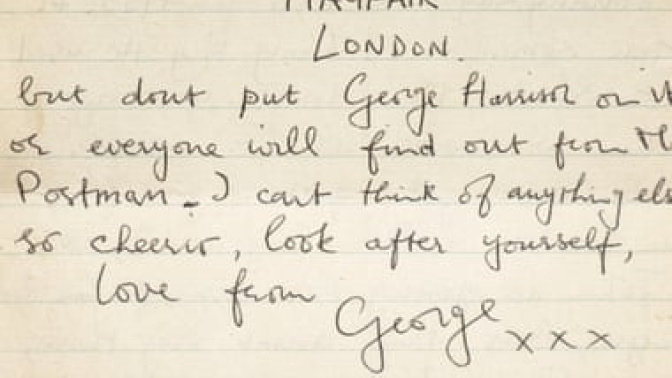 MAYFAIR
LONDON.
but dont put George Harrison on
or everyone will find out from
Postman - I cant think of anything els
so cheerio, look after yourself,
love from
George x x x